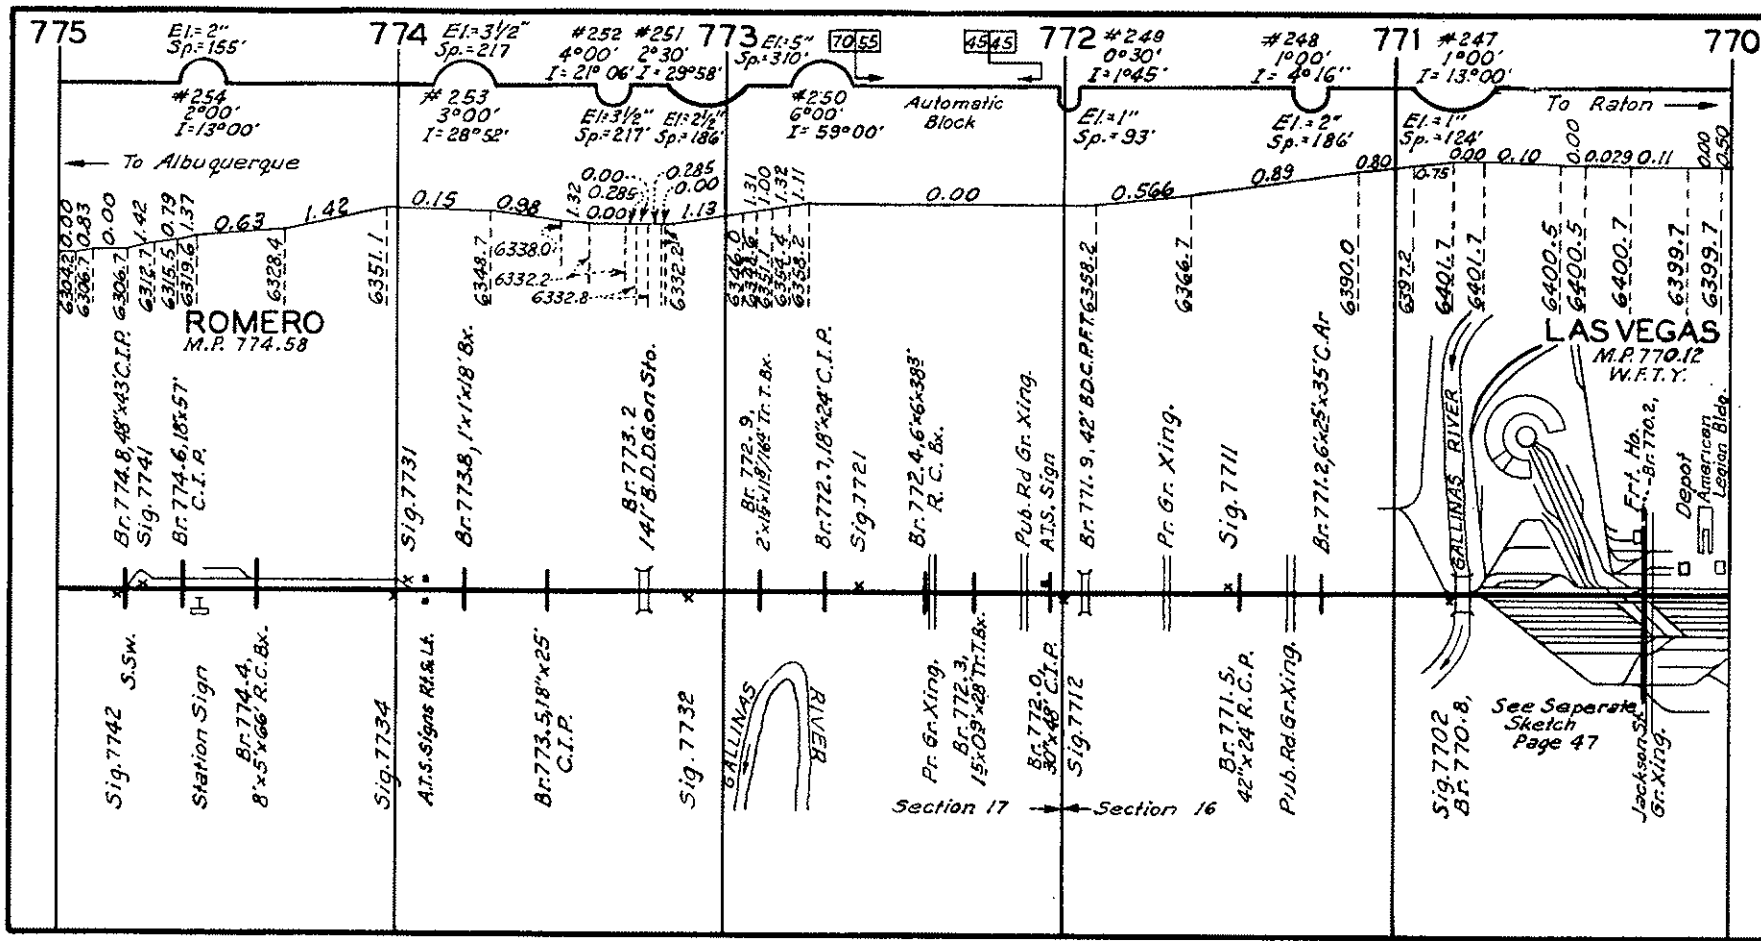 775
774
773
772
771
770
El.=2"
Sp.=155'
#254
2°00'
I=13°00'
El.=3 1/2"
Sp.=217
#253
3°00'
I=28°52'
#252
4°00'
I=21°06'
El=3 1/2"
Sp.=217'
#251
2°30'
I=29°58'
El=2 1/2"
Sp.=186'
El=5"
Sp.=310'
#250
6°00'
I=59°00'
70 55
45 45
Automatic
Block
#249
0°30'
I=1°45'
El.=1"
Sp.=93'
#248
1°00'
I=4°16'
El.=2"
Sp.=186'
#247
1°00'
I=13°00'
El.=1"
Sp.=124'
To Raton
To Albuquerque
0.00
0.83
0.00
1.42
0.79
1.37
0.63
1.42
0.15
0.98
1.32
0.00
0.285
0.00
0.285
0.00
1.13
1.31
1.00
1.32
1.11
0.00
0.566
0.89
0.80
0.75
0.00
0.10
0.00
0.029
0.11
0.00
0.50
6304.2
6306.7
6306.7
6312.7
6315.5
6319.6
6328.4
6351.1
6348.7
6338.0
6332.2
6332.8
6332.2
6346.0
6351.1
6354.4
6358.2
6358.2
6366.7
6390.0
6397.2
6401.7
6401.7
6400.5
6400.5
6400.7
6399.7
6399.7
ROMERO
M.P. 774.58
LAS VEGAS
M.P. 770.12
W.F.T.Y.
Br. 774.8, 48"x43' C.I.P.
Sig. 7741
Br. 774.6, 18"x57'
C.I.P.
Sig. 7731
Br. 773.8, 1'x1'x18' Bx.
Br. 773.2
141' B.D.D.G. on Sto.
Br. 772.9,
Br. 772.7, 18"x24' C.I.P.
Sig. 7721
Br. 772.4, 6'x6'x38 3"
R. C. Bx.
Pub. Rd Gr. Xing.
A.T.S. Sign
Br. 771.9, 42' B.D.C.P.F.T.
Pr. Gr. Xing.
Sig. 7711
Br. 771.2, 6'x25'x35' C. Ar
GALLINAS RIVER
Frt. Ho.
Br. 770.2,
Depot
American
Legion Bldg.
Sig. 7742
S. Sw.
Station Sign
Br. 774.4,
8'x5'x66' R.C. Bx.
Sig. 7734
A.T.S. Signs Rt. & Lt.
Br. 773.5, 18"x25'
C.I.P.
Sig. 7732
GALLINAS
RIVER
Pr. Gr. Xing.
Br. 772.3,
Br. 772.0,
30"x48' C.I.P.
Sig. 7712
Br. 771.5,
42"x24' R.C.P.
Pub. Rd. Gr. Xing.
Sig. 7702
Br. 770.8,
See Seperate
Sketch
Page 47
Jackson St.
Gr. Xing.
Section 17
Section 16